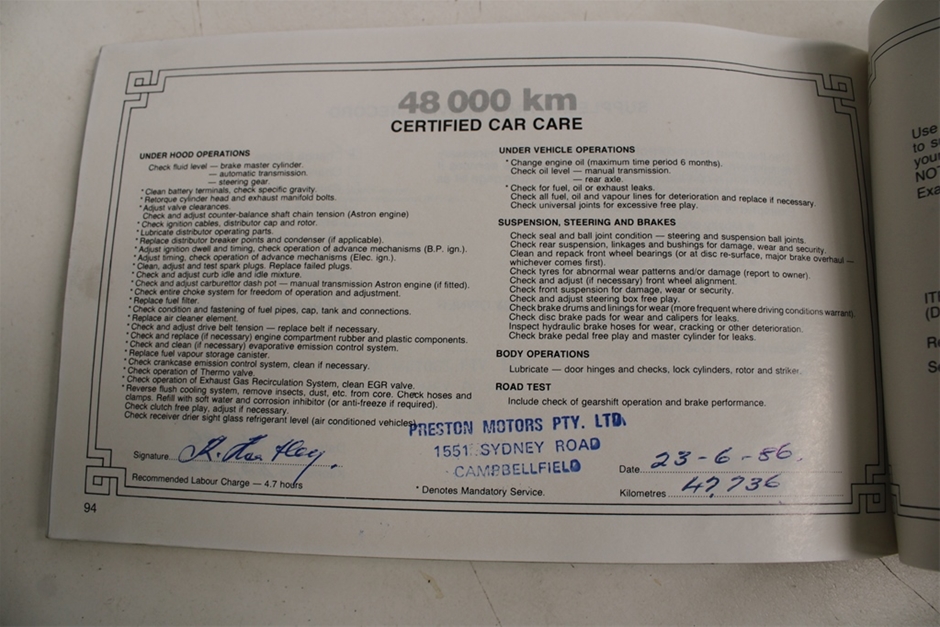 48 000 km
CERTIFIED CAR CARE
UNDER HOOD OPERATIONS
Check fluid level — brake master cylinder.
— automatic transmission.
— steering gear.
* Clean battery terminals, check specific gravity.
* Retorque cylinder head and exhaust manifold bolts.
* Adjust valve clearances.
Check and adjust counter-balance shaft chain tension (Astron engine)
* Check ignition cables, distributor cap and rotor.
* Lubricate distributor operating parts.
* Replace distributor breaker points and condenser (if applicable).
* Adjust ignition dwell and timing, check operation of advance mechanisms (B.P. ign.).
* Adjust timing, check operation of advance mechanisms (Elec. ign.).
* Clean, adjust and test spark plugs. Replace failed plugs.
* Check and adjust curb idle and idle mixture.
* Check and adjust carburettor dash pot — manual transmission Astron engine (if fitted).
* Check entire choke system for freedom of operation and adjustment.
* Replace fuel filter.
* Check condition and fastening of fuel pipes, cap, tank and connections.
* Replace air cleaner element.
* Check and adjust drive belt tension — replace belt if necessary.
* Check and replace (if necessary) engine compartment rubber and plastic components.
* Check and clean (if necessary) evaporative emission control system.
* Replace fuel vapour storage canister.
* Check crankcase emission control system, clean if necessary.
* Check operation of Thermo valve.
* Check operation of Exhaust Gas Recirculation System, clean EGR valve.
* Reverse flush cooling system, remove insects, dust, etc. from core. Check hoses and
clamps. Refill with soft water and corrosion inhibitor (or anti-freeze if required).
Check clutch free play, adjust if necessary.
Check receiver drier sight glass refrigerant level (air conditioned vehicles)
Signature R. Hartley.
Recommended Labour Charge — 4.7 hours
94
UNDER VEHICLE OPERATIONS
* Change engine oil (maximum time period 6 months).
Check oil level — manual transmission.
— rear axle.
* Check for fuel, oil or exhaust leaks.
Check all fuel, oil and vapour lines for deterioration and replace if necessary.
Check universal joints for excessive free play.
SUSPENSION, STEERING AND BRAKES
Check seal and ball joint condition — steering and suspension ball joints.
Check rear suspension, linkages and bushings for damage, wear and security.
Clean and repack front wheel bearings (or at disc re-surface, major brake overhaul —
whichever comes first).
Check tyres for abnormal wear patterns and/or damage (report to owner).
Check and adjust (if necessary) front wheel alignment.
Check front suspension for damage, wear or security.
Check and adjust steering box free play.
Check brake drums and linings for wear (more frequent where driving conditions warrant).
Check disc brake pads for wear and calipers for leaks.
Inspect hydraulic brake hoses for wear, cracking or other deterioration.
Check brake pedal free play and master cylinder for leaks.
BODY OPERATIONS
Lubricate — door hinges and checks, lock cylinders, rotor and striker.
ROAD TEST
Include check of gearshift operation and brake performance.
PRESTON MOTORS PTY. LTD.
1551 SYDNEY ROAD
CAMPBELLFIELD
* Denotes Mandatory Service.
Date 23-6-86.
Kilometres 47,736
Use
to
your
NOT
Exa
(D